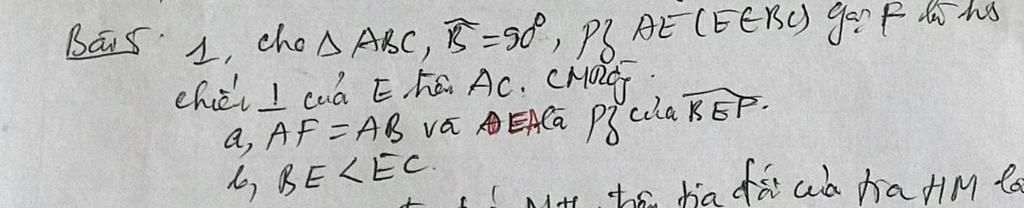 Bài 5. 1, cho Δ ABC, B̂ = 90°, Pg AE (E∈BC) gọi F là hc
chiếu ⊥ của E trên AC. CMRằng.
a, AF = AB và EA là Pg của BEF.
b, BE < EC.
trên tia đối của tia HM